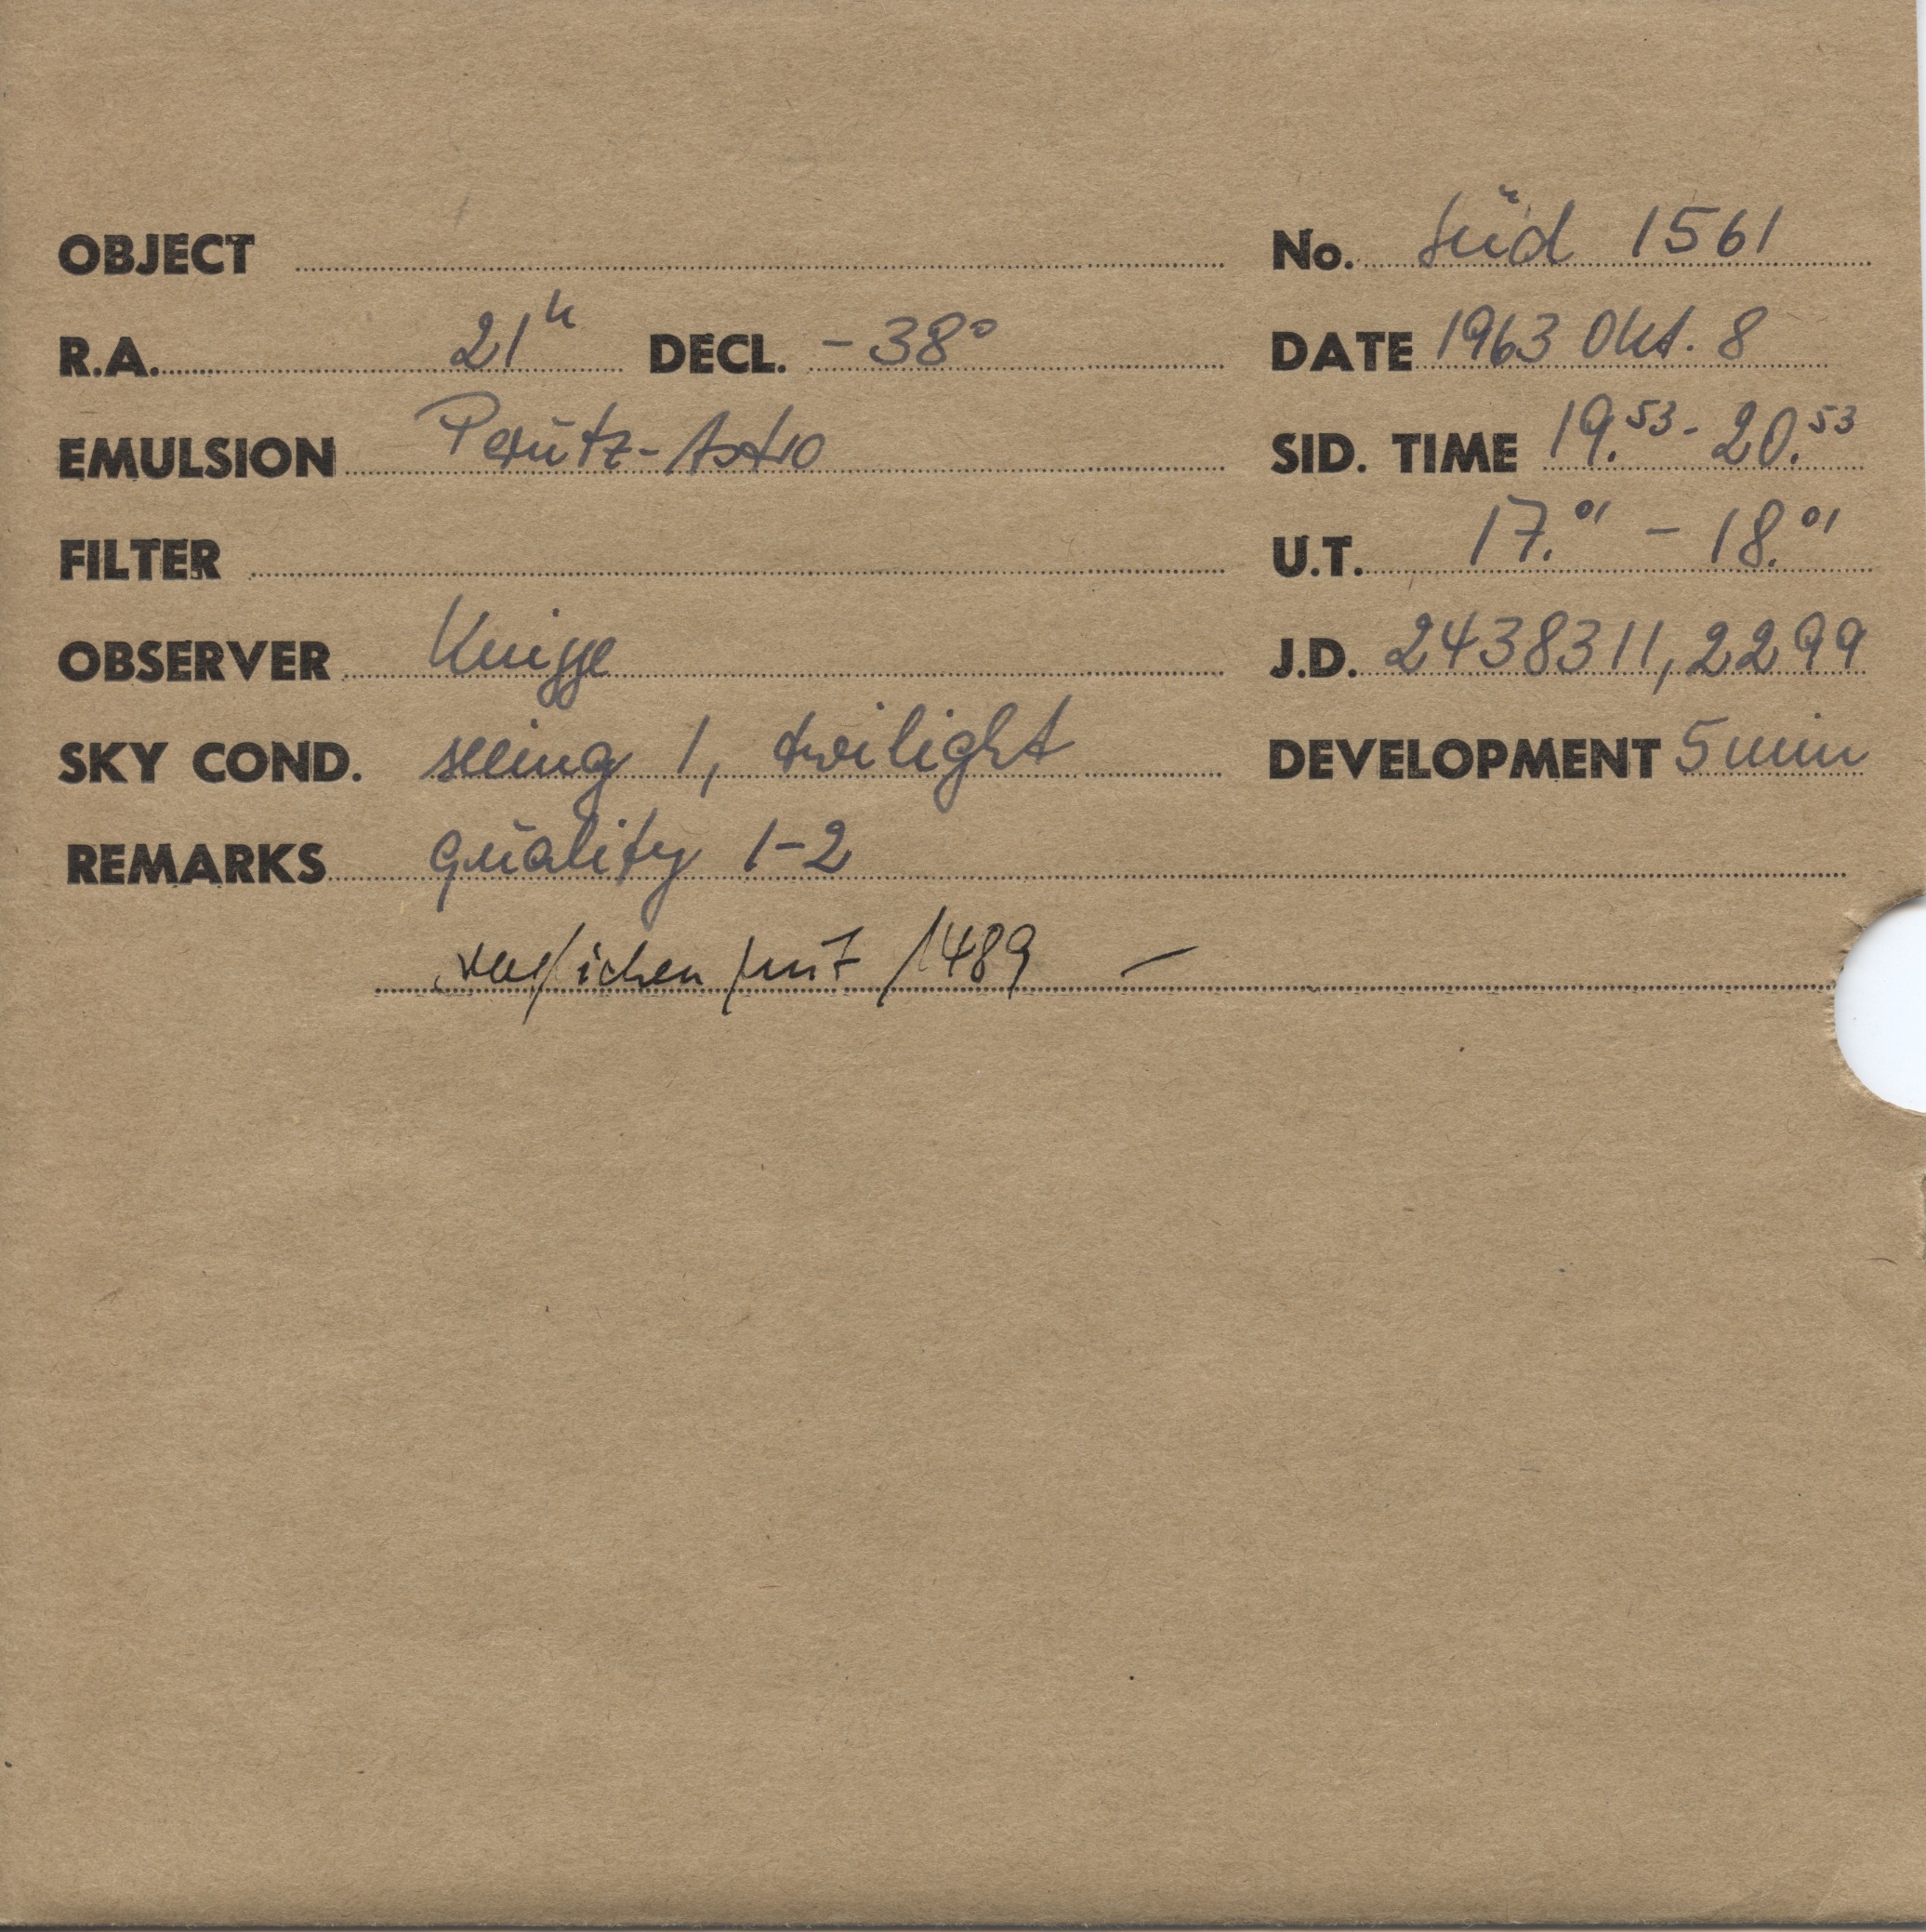 OBJECT No. Süd 1561
R.A. 21h DECL. -38° DATE 1963 Okt. 8
EMULSION Perutz-Astro SID. TIME 19.53 - 20.53
FILTER U.T. 17.01 - 18.01
OBSERVER Knigge J.D. 2438311,2299
SKY COND. seeing 1, twilight DEVELOPMENT 5 min
REMARKS quality 1-2
verglichen mit 1489 —